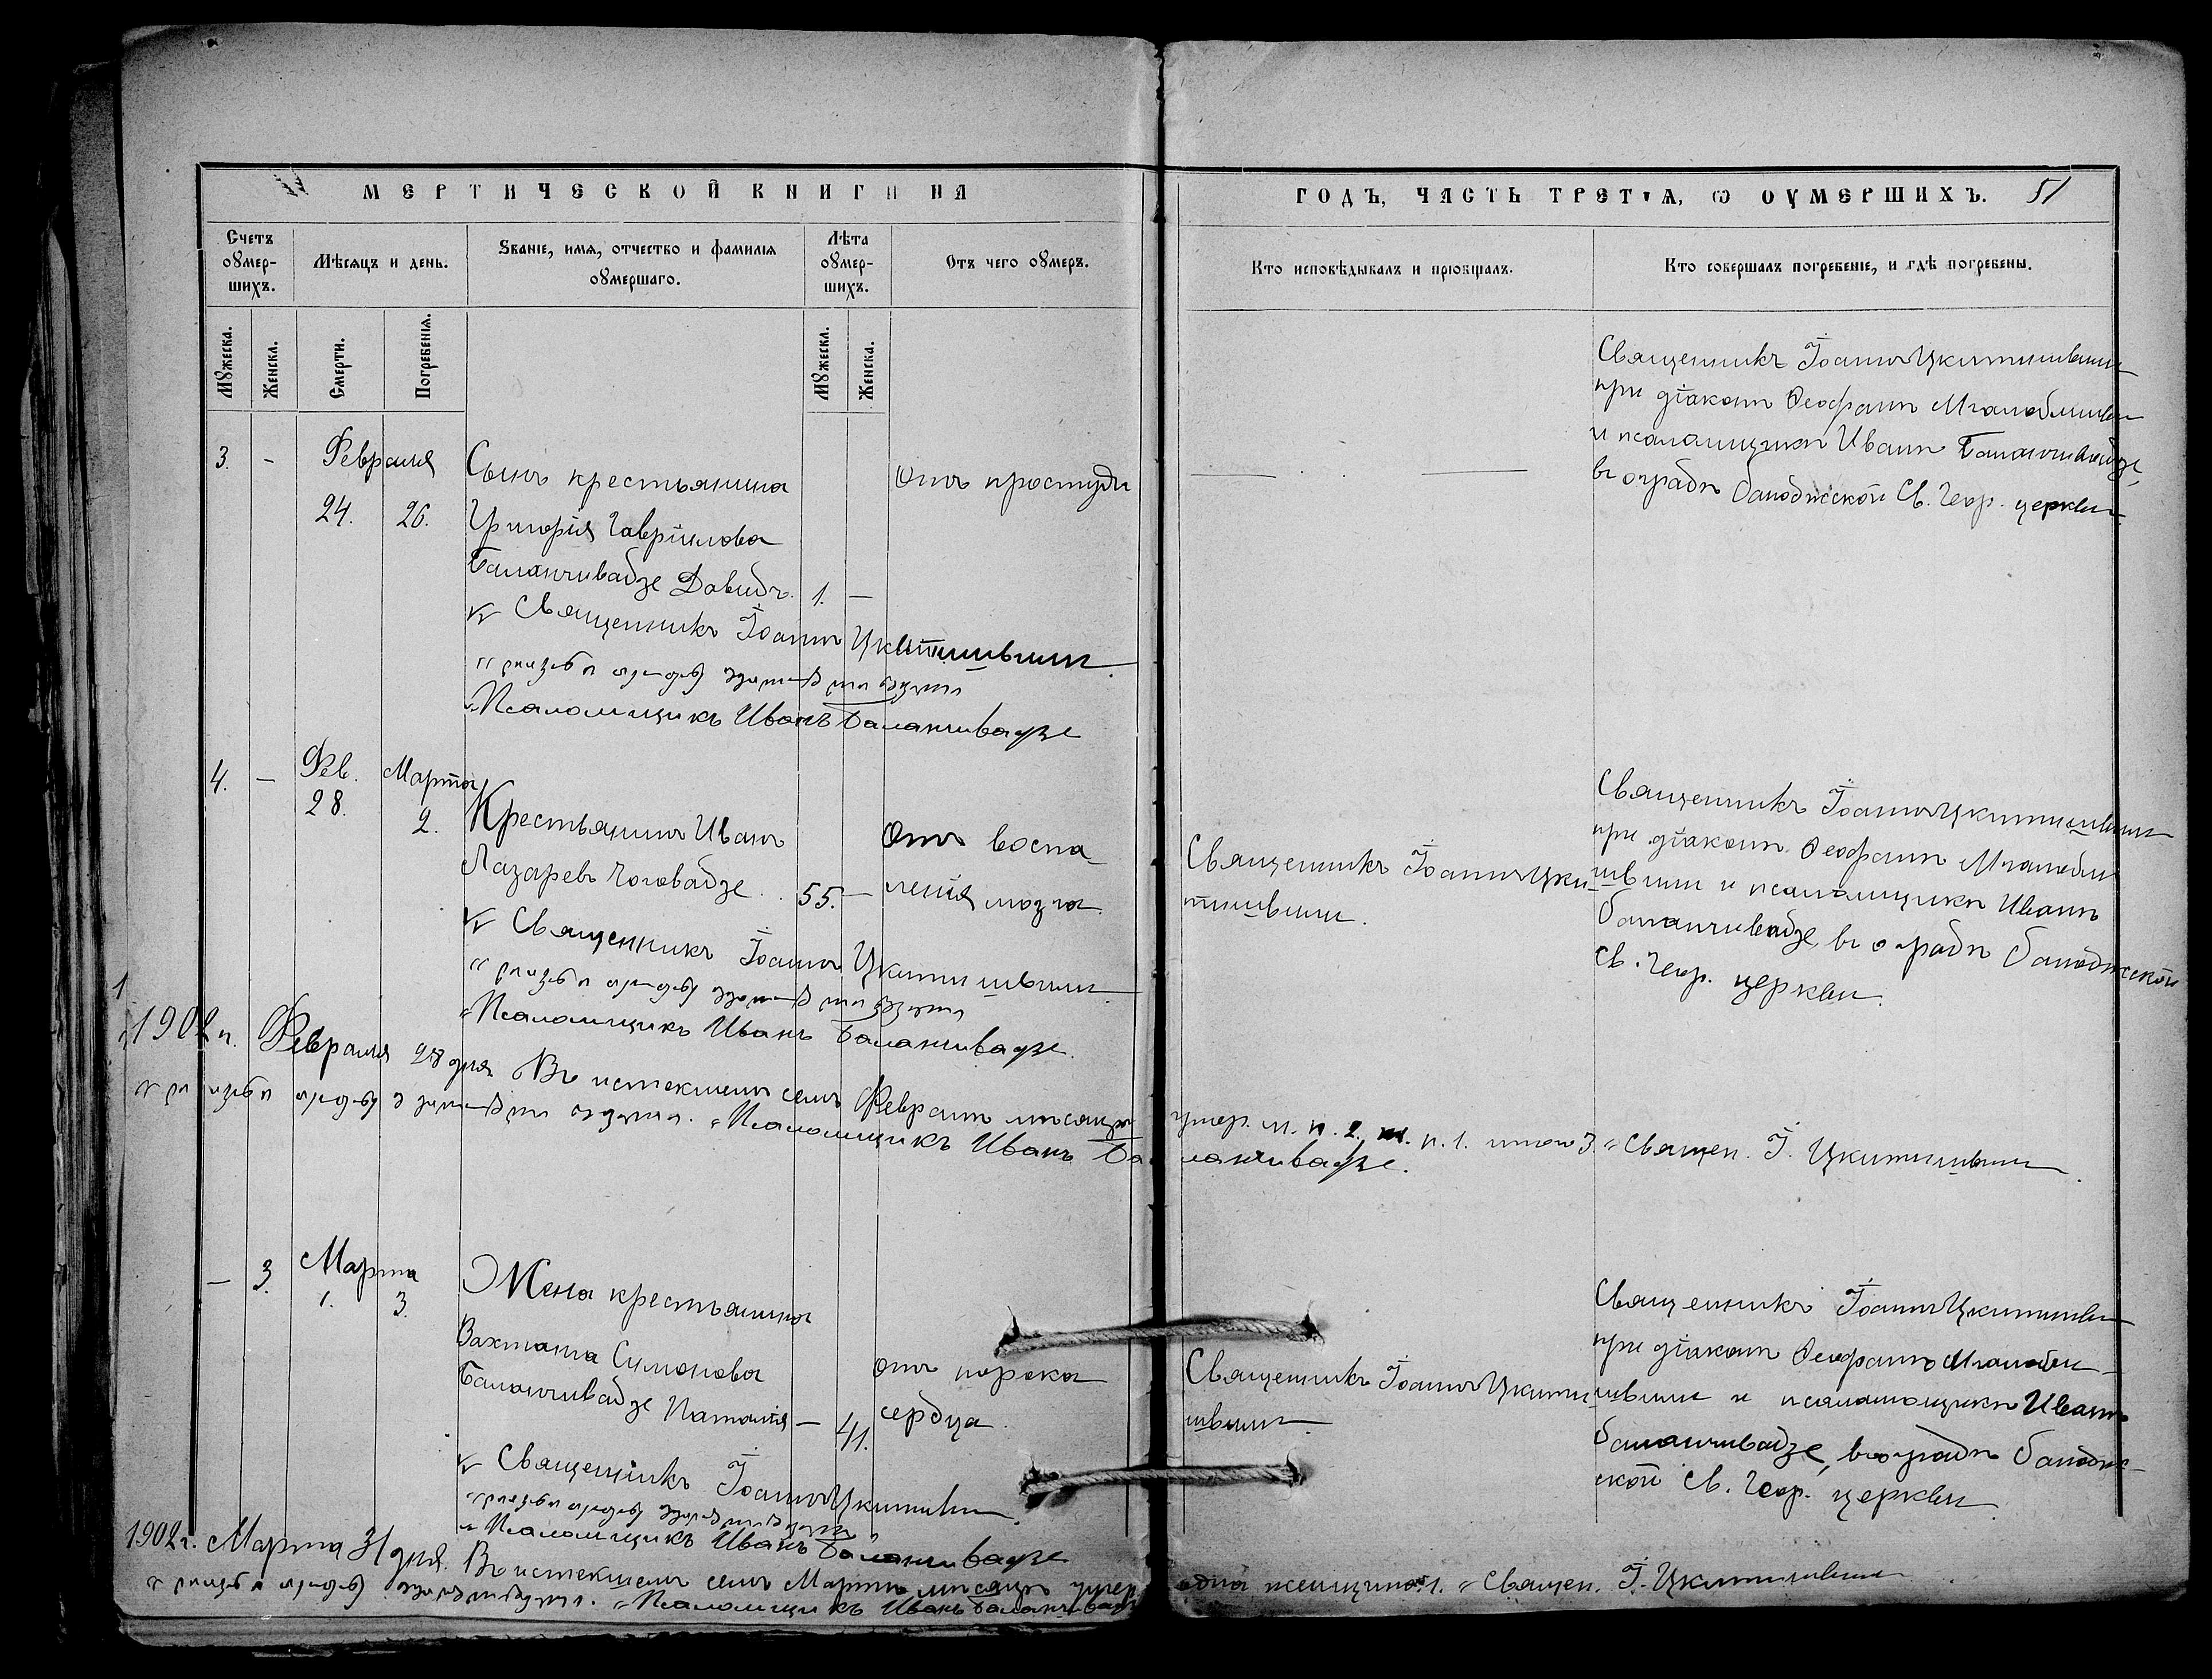 МЕРТИЧЕСКОЙ КНИГИ НА
ГОДЪ, ЧАСТЬ ТРЕТІЯ, Ѡ ОУМЕРШИХЪ. 51
Счетъ оумерших.
Мѣсяцъ и день.
Званіе, имя, отчество и фамилія оумершаго.
Лѣта оумерших.
Отъ чего оумеръ.
Кто исповѣдывалъ и пріобщалъ.
Кто совершалъ погребеніе, и гдѣ погребены.
Мужеска.
Женска.
Смерти.
Погребенія.
Мужеска.
Женска.
3. - Февраля
24. 26.
Сынъ крестьянина
Григорія Гавріилова
Баланчивадзе Давидъ. 1. —
Отъ простуды
Священникъ Іоаннъ Цкитишвили
при діаконѣ Ѳеофанѣ Мгалоблишвили
и псаломщикѣ Иванѣ Баланчивадзе,
въ оградѣ баноджской Св. Геор. церкви
Священникъ Іоаннъ Цкитишвили
Псаломщикъ Иванъ Баланчивадзе
4. — Фев. Марта
28. 2.
Крестьянинъ Иванъ
Лазаревъ Чоговадзе. 55. —
Отъ воспа-
ленія мозга.
Священникъ Іоаннъ Цки-
тишвили.
Священникъ Іоаннъ Цкитишвили
при діаконѣ Ѳеофанѣ Мгалобли-
швили и псаломщикѣ Иванѣ
Баланчивадзе, въ оградѣ баноджской
Св. Геор. церкви.
Священникъ Іоаннъ Цкитишвили
Псаломщикъ Иванъ Баланчивадзе.
1902 г. Февраля 28 дня Въ истекшемъ семъ Февралѣ мѣсяцѣ умер. м. п. 2. ж. п. 1. итого 3. Священ. І. Цкитишвили
Псаломщикъ Иванъ Баланчивадзе.
— 3. Марта
1. 3.
Жена крестьянина
Вахтанга Симонова
Баланчивадзе Наталія — 41.
Отъ порока
сердца.
Священникъ Іоаннъ Цкити-
швили.
Священникъ Іоаннъ Цкитишвили
при діаконѣ Ѳеофанѣ Мгалобли-
швили и псаломщикѣ Иванѣ
Баланчивадзе, въ оградѣ банодж-
ской Св. Геор. церкви
Священникъ Іоаннъ Цкитишвили.
Псаломщикъ Иванъ Баланчивадзе
1902 г. Марта 31 дня. Въ истекшемъ семъ Мартѣ мѣсяцѣ умер. одна женщина 1. Священ. І. Цкитишвили
Псаломщикъ Иванъ Баланчивадзе